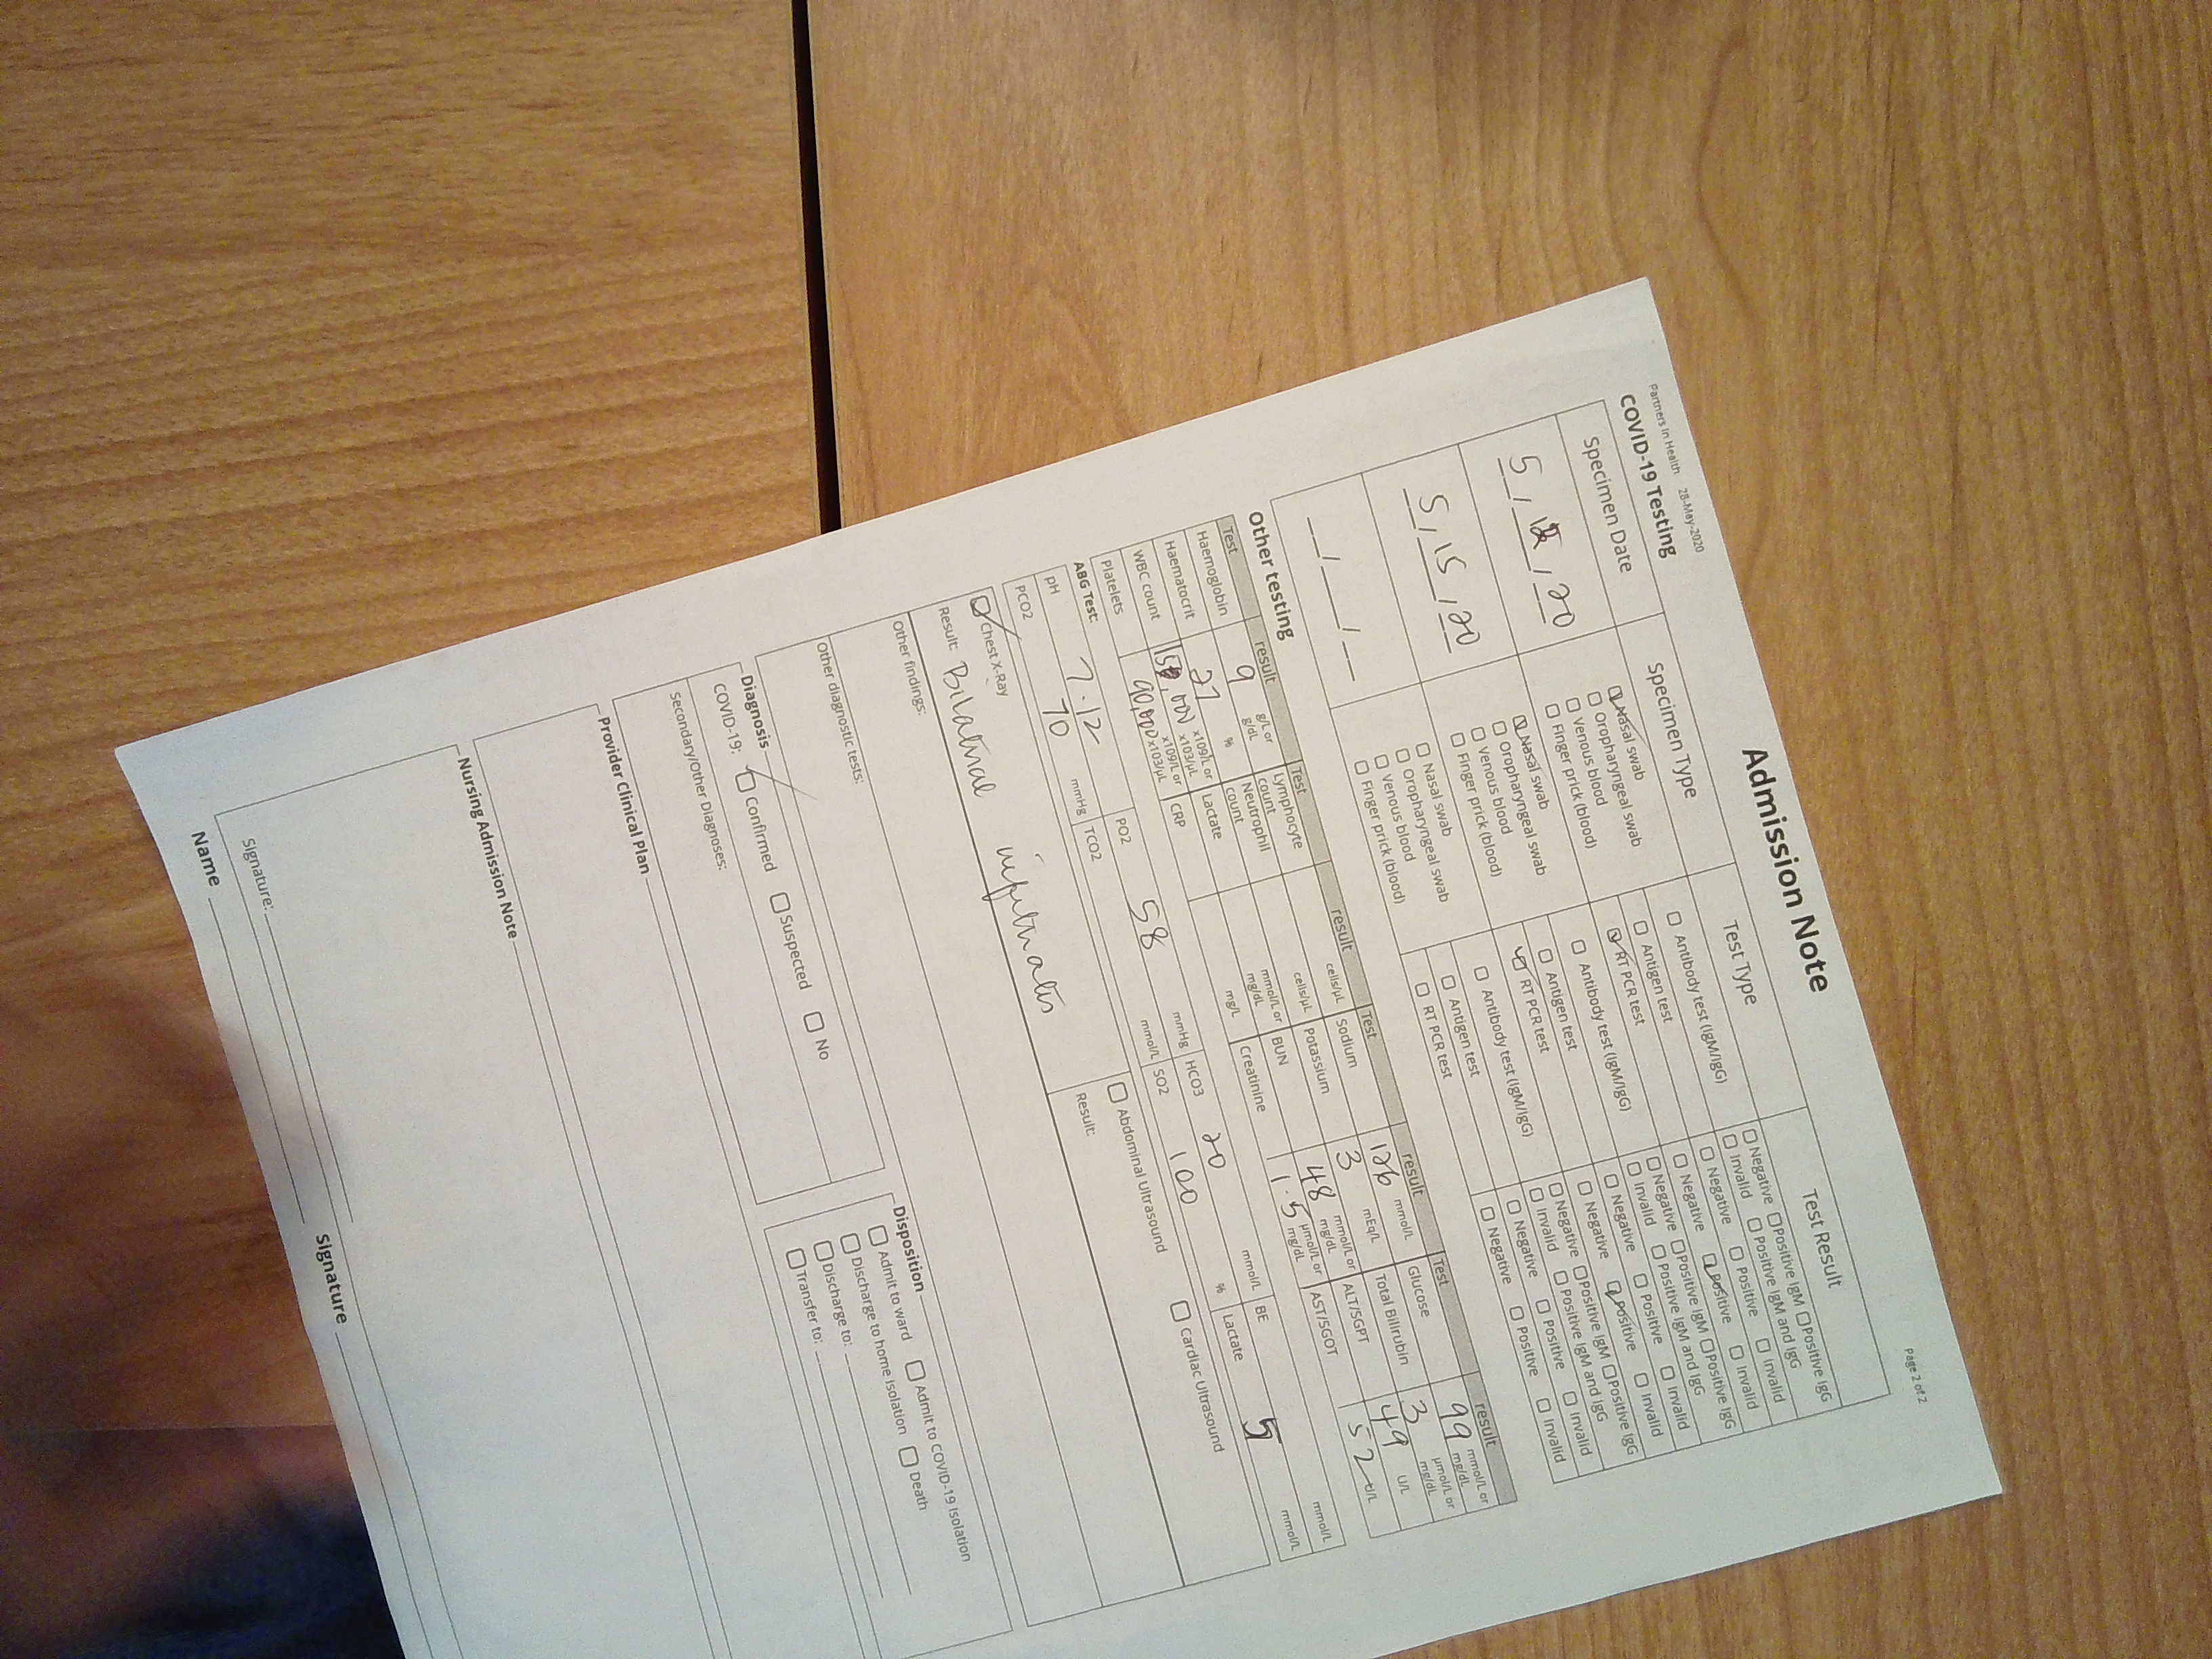 Partners In Health 28-May-2020
Page 2 of 2
Admission Note
COVID-19 Testing
Specimen Date Specimen Type Test Type Test Result
5 / / 20
☑ Nasal swab
☐ Oropharyngeal swab
☐ Venous blood
☐ Finger prick (blood)
☐ Antibody test (IgM/IgG)
☐ Antigen test
☑ RT PCR test
☐ Negative ☐ Positive IgM ☐ Positive IgG
☐ Invalid ☐ Positive IgM and IgG
☐ Negative ☐ Positive ☐ Invalid
☐ Negative ☑ Positive ☐ Invalid
5 / 15 / 20
☑ Nasal swab
☐ Oropharyngeal swab
☐ Venous blood
☐ Finger prick (blood)
☐ Antibody test (IgM/IgG)
☐ Antigen test
☑ RT PCR test
☐ Negative ☐ Positive IgM ☐ Positive IgG
☐ Invalid ☐ Positive IgM and IgG
☐ Negative ☐ Positive ☐ Invalid
☐ Negative ☑ Positive ☐ Invalid
__/__/__
☐ Nasal swab
☐ Oropharyngeal swab
☐ Venous blood
☐ Finger prick (blood)
☐ Antibody test (IgM/IgG)
☐ Antigen test
☐ RT PCR test
☐ Negative ☐ Positive IgM ☐ Positive IgG
☐ Invalid ☐ Positive IgM and IgG
☐ Negative ☐ Positive ☐ Invalid
☐ Negative ☐ Positive ☐ Invalid
Other testing
Test result Test result Test result Test result
Haemoglobin 9 g/L or g/dL Lymphocyte count cells/µL Sodium 126 mmol/L Glucose 99 mmol/L or mg/dL
Haematocrit 27 % Neutrophil count cells/µL Potassium 3 mEq/L Total Bilirubin 3 µmol/L or mg/dL
WBC count x109/L or x103/µL Lactate mmol/L or mg/dL BUN 48 mmol/L or mg/dL ALT/SGPT 49 U/L
Platelets 90,000 x109/L or x103/µL CRP mg/L Creatinine 1.5 µmol/L or mg/dL AST/SGOT 52 U/L
ABG Test:
pH 7.12 PO2 58 mmHg HCO3 20 mmol/L BE mmol/L
PCO2 70 mmHg TCO2 mmol/L SO2 100 % Lactate 5 mmol/L
☑ Chest X-Ray ☐ Abdominal Ultrasound ☐ Cardiac Ultrasound
Result: Bilateral infiltrates Result:
Other findings:
Other diagnostic tests:
Diagnosis
COVID-19: ☑ Confirmed ☐ Suspected ☐ No
Secondary/Other Diagnoses:
Disposition
☐ Admit to ward ☐ Admit to COVID-19 Isolation
☐ Discharge to home isolation ☐ Death
☐ Discharge to:
☐ Transfer to:
Provider Clinical Plan
Nursing Admission Note
Signature:
Name Signature